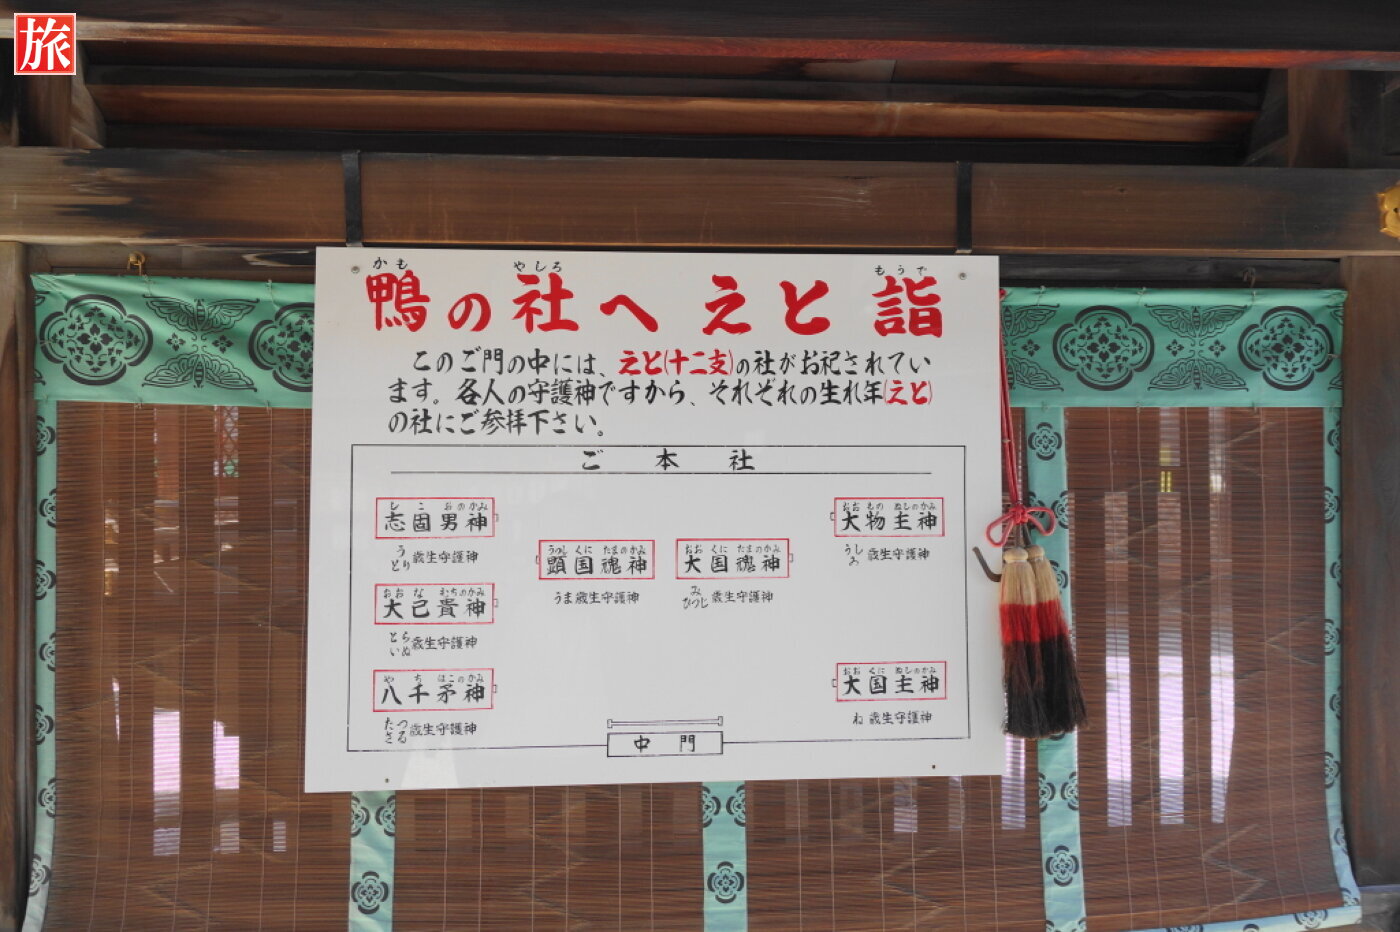 旅
かも やしろ もうで
鴨の社へ えと 詣
このご門の中には、えと(十二支)の社がお祀されてい
ます。各人の守護神ですから、それぞれの生れ年(えと)
の社にご参拝下さい。
ご 本 社
しこおのかみ
志固男神
う とり 歳生守護神
おおなむちのかみ
大己貴神
とら いぬ 歳生守護神
やちほこのかみ
八千矛神
たつ さる 歳生守護神
うつしくにたまのかみ
顕国魂神
うま歳生守護神
おおくにたまのかみ
大国魂神
み ひつじ 歳生守護神
おおものぬしのかみ
大物主神
うし ゐ 歳生守護神
おおくにぬしのかみ
大国主神
ね 歳生守護神
中 門